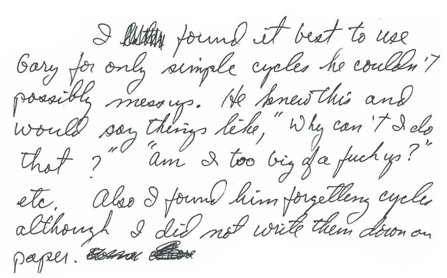 I found it best to use
Gary for only simple cycles he couldn't
possibly mess ups. He knew this and
would say things like, "Why can't I do
that?" "Am I too big of a fuck up?"
etc. Also I found him forgetting cycles
although I did not write them down on
paper.